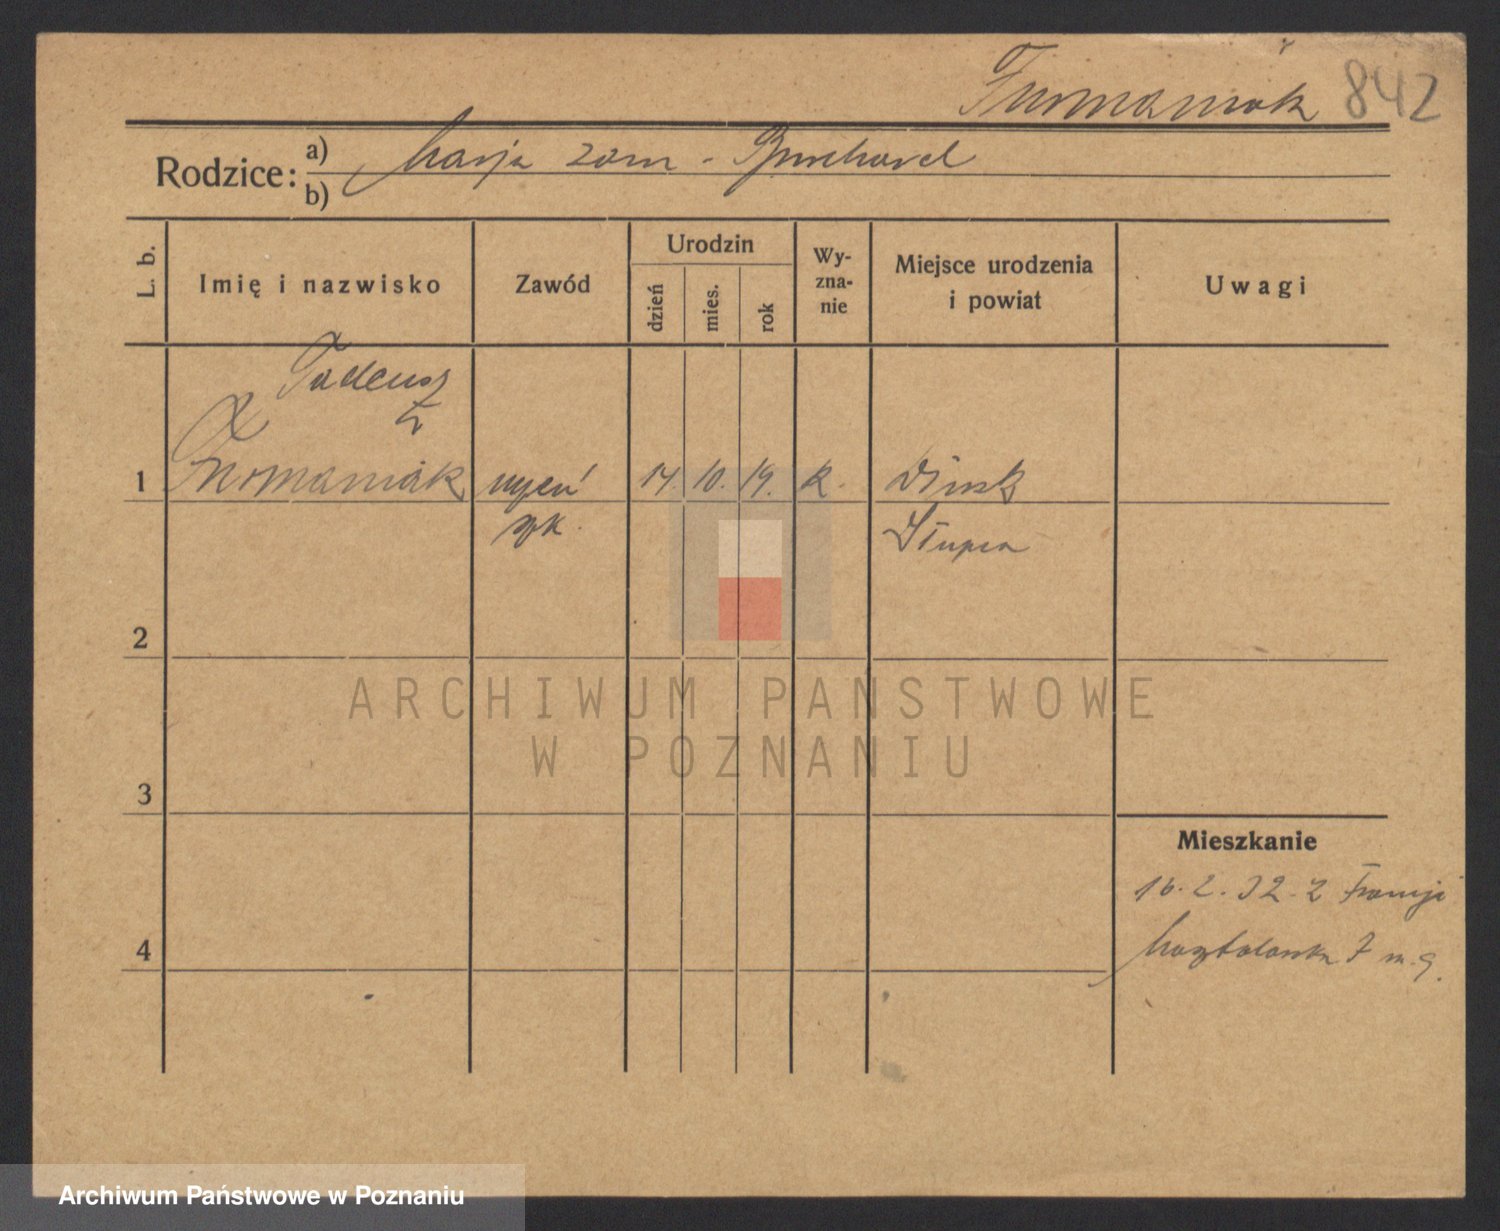 Furmaniak 842
Rodzice: a) Marja zam - Burchard
b)
L. b.
Imię i nazwisko
Zawód
Urodzin
dzień
mies.
rok
Wy-
zna-
nie
Miejsce urodzenia
i powiat
Uwagi
Tadeusz
1 Furmaniak uczeń 14. 10. 19. k.
Słupca
2
3
4
Mieszkanie
16. 2. 32. z Francji
Masztalarska 7 m. 9.
ARCHIWUM PAŃSTWOWE
W POZNANIU
Archiwum Państwowe w Poznaniu